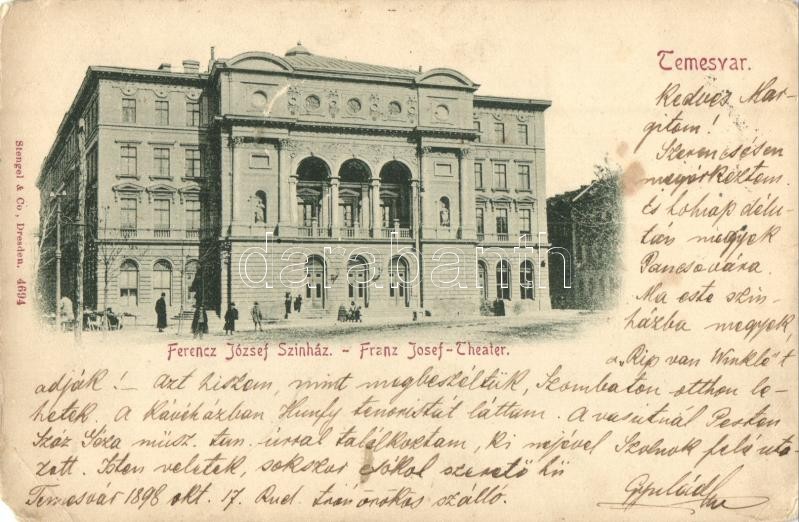 Temesvar.
Kedves Mar-
gitom!
Szerencsésen
megérkeztem
és holnap délu-
tán megyek
Pancsovára.
Ma este szin-
házba megyek,
a „Rip van Winkle"t
Stengel & Co., Dresden. 4694
darabanth
Ferencz József Szinház. - Franz Josef-Theater.
adják! – Azt hiszem, mint megbeszéltük, Szombaton otthon le-
hetek. A kávéházban Hunfy tenoristát láttam. A vasutnál Pesten
Száz Géza műsz. tan. úrral találkoztam, ki nejével Szolnok felé uta-
zott. Isten veletek, sokszor csókol szerető hű
Temesvár 1898 okt. 17. Rud. trónörökös szálló.